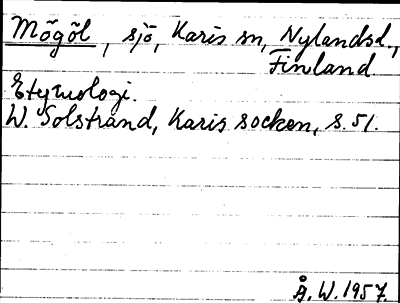 Mögöl, sjö, Karis sn, Nylandsl.,
Finland
Etymologi.
W. Solstrand, Karis socken, s. 51.
Å. W. 1957.